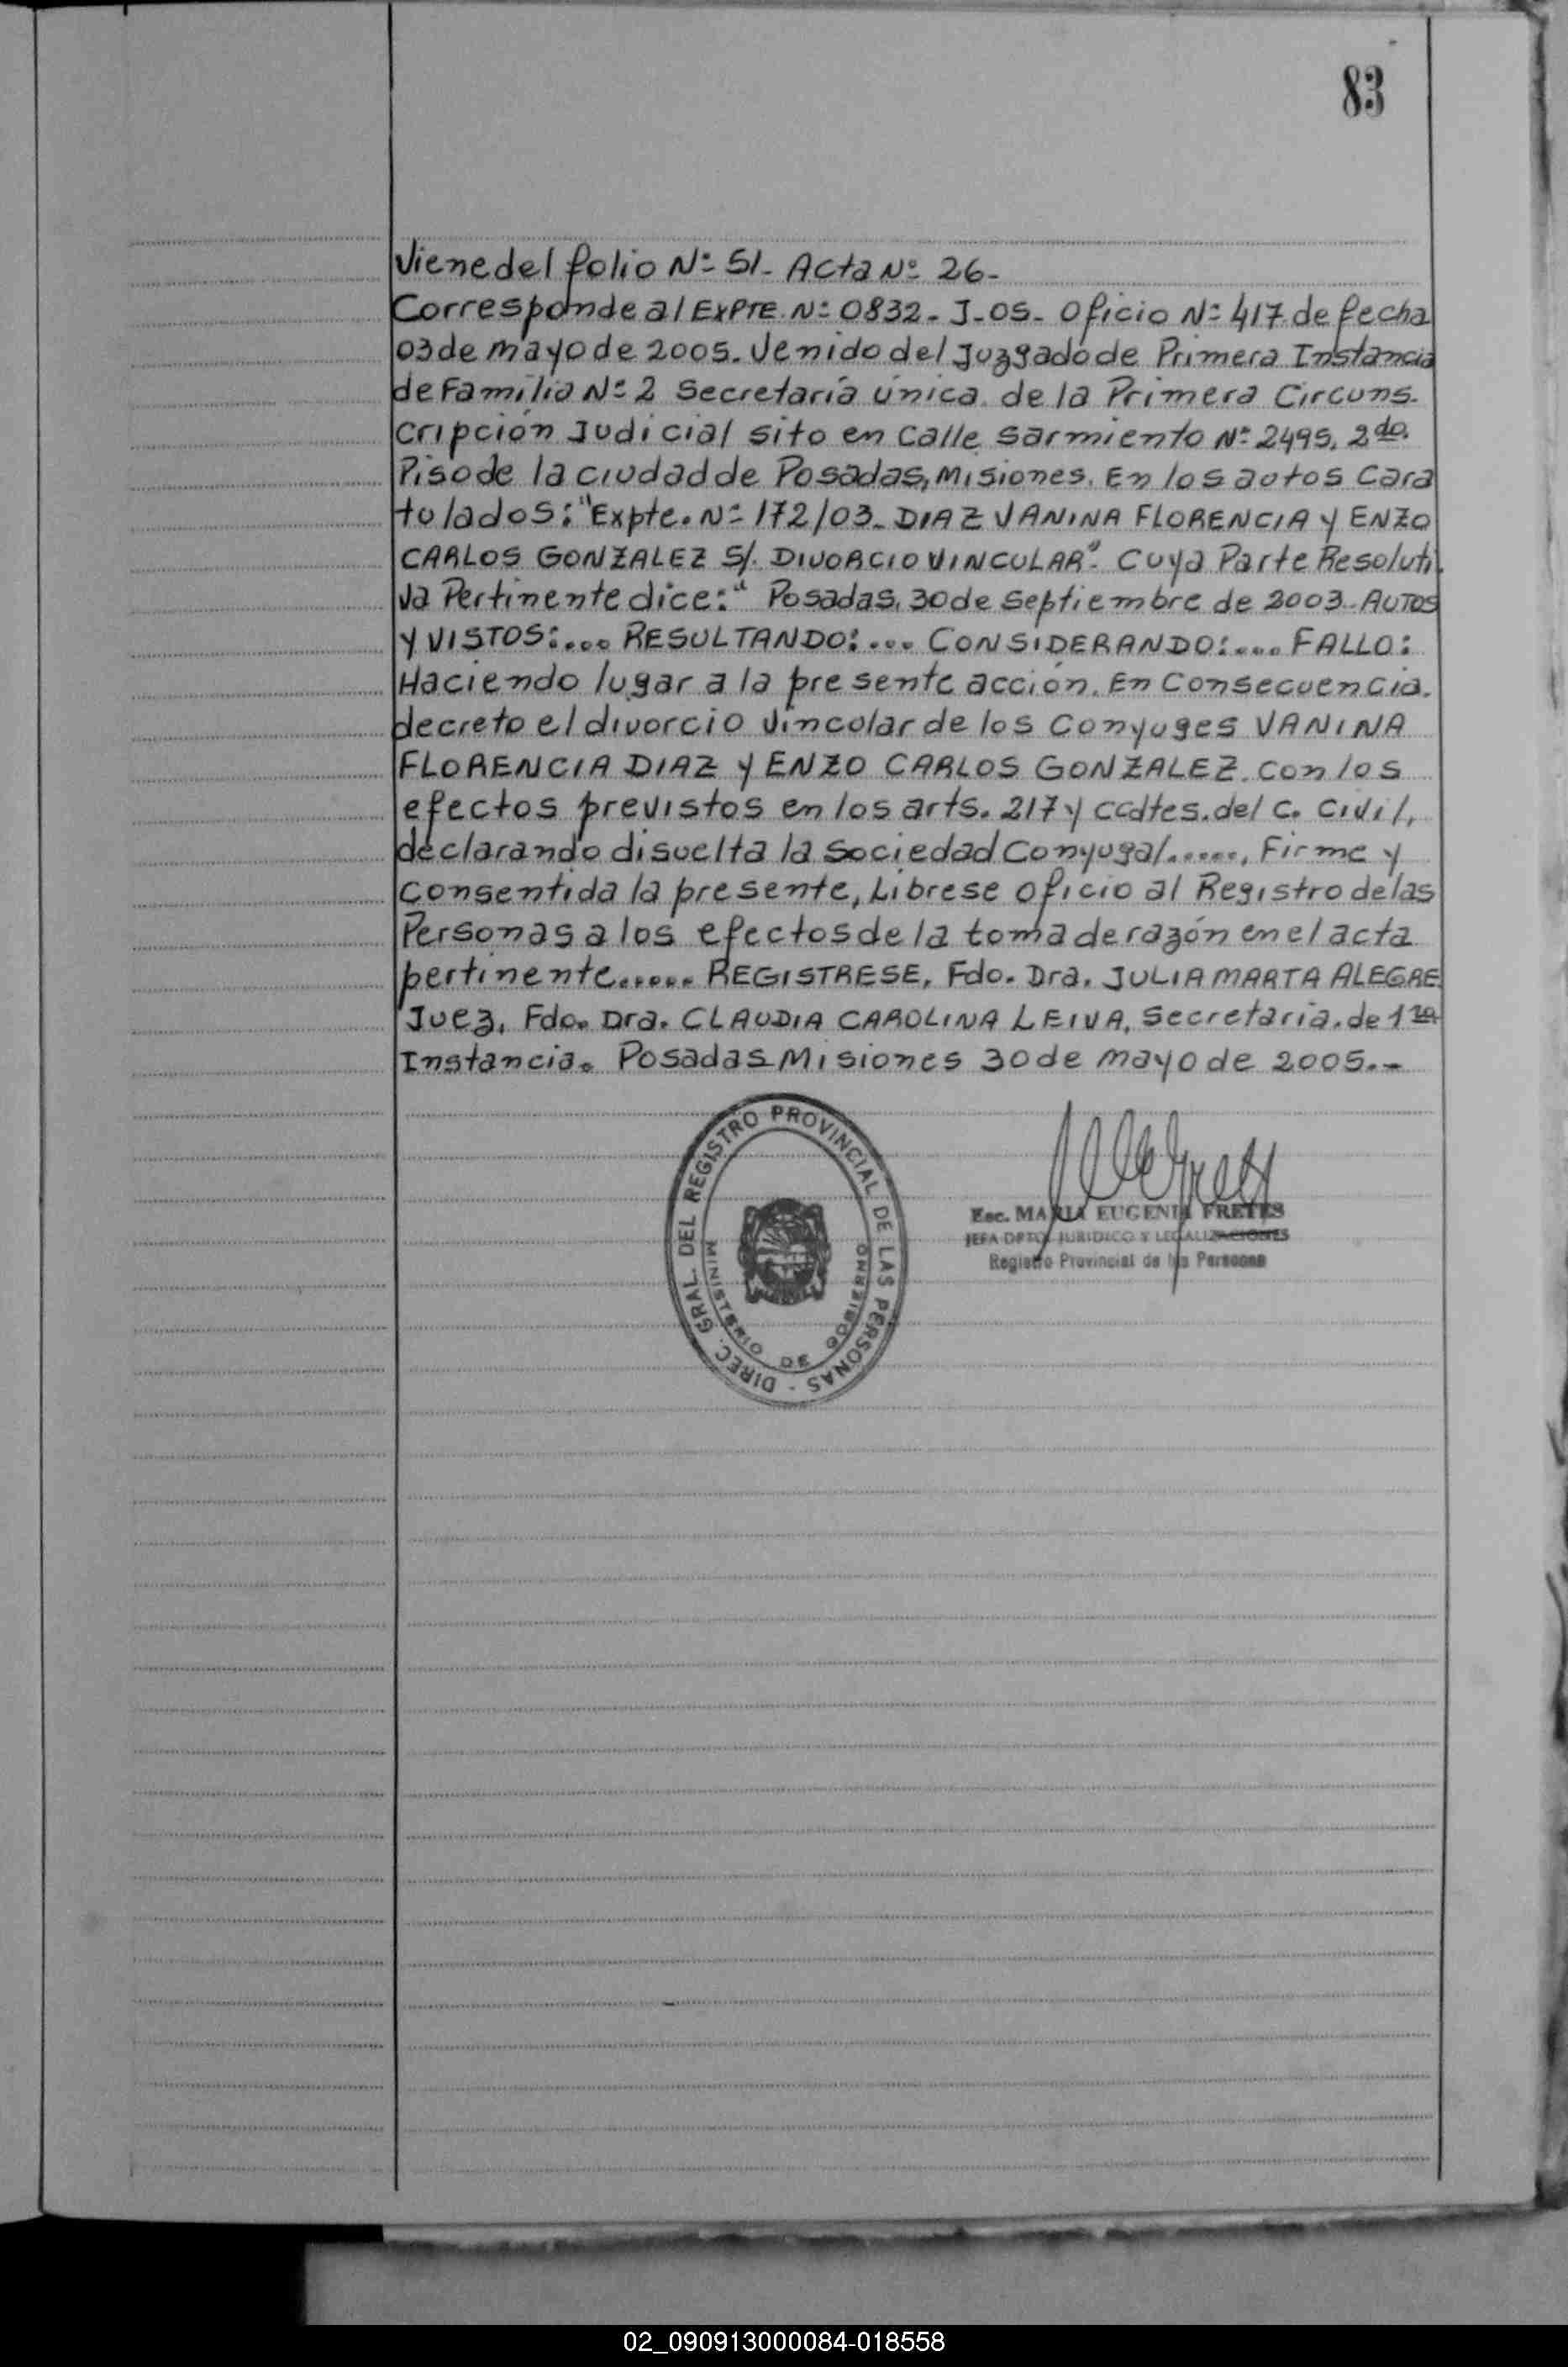 83
Viene del folio Nº 51- Acta Nº 26-
Corresponde al EXPTE. Nº 0832- J-05- Oficio Nº 417 de fecha
03 de mayo de 2005. Venido del Juzgado de Primera Instancia
de Familia Nº 2 Secretaría única de la Primera Circuns-
cripción Judicial sito en Calle Sarmiento Nº 2495, 2do.
Piso de la ciudad de Posadas, Misiones. En los autos Cara
tulados: "Expte. Nº 172/03- DIAZ VANINA FLORENCIA Y ENZO
CARLOS GONZALEZ S/. DIVORCIO VINCULAR". Cuya Parte Resoluti-
va Pertinente dice: " Posadas, 30 de Septiembre de 2003.. AUTOS
Y VISTOS:.... RESULTANDO:.... CONSIDERANDO:.... FALLO:
Haciendo lugar a la presente acción. En Consecuencia.
decreto el divorcio vincular de los Conyuges VANINA
FLORENCIA DIAZ Y ENZO CARLOS GONZALEZ. con los
efectos previstos en los arts. 217 y ccdtes. del C. Civil,
declarando disuelta la Sociedad Conyugal......, Firme y
consentida la presente, Líbrese oficio al Registro de las
Personas a los efectos de la toma de razón en el acta
pertinente...... REGISTRESE, Fdo. Dra. JULIA MARTA ALEGRE
Juez, Fdo. Dra. CLAUDIA CAROLINA LEIVA, Secretaria. de 1ra
Instancia. Posadas Misiones 30 de mayo de 2005.-
DIREC. GRAL. DEL REGISTRO PROVINCIAL DE LAS PERSONAS -
MINISTERIO DE GOBIERNO
Esc. MARIA EUGENIA FRETES
JEFA DPTO. JURIDICO Y LEGALIZACIONES
Registro Provincial de las Personas
02_090913000084-018558